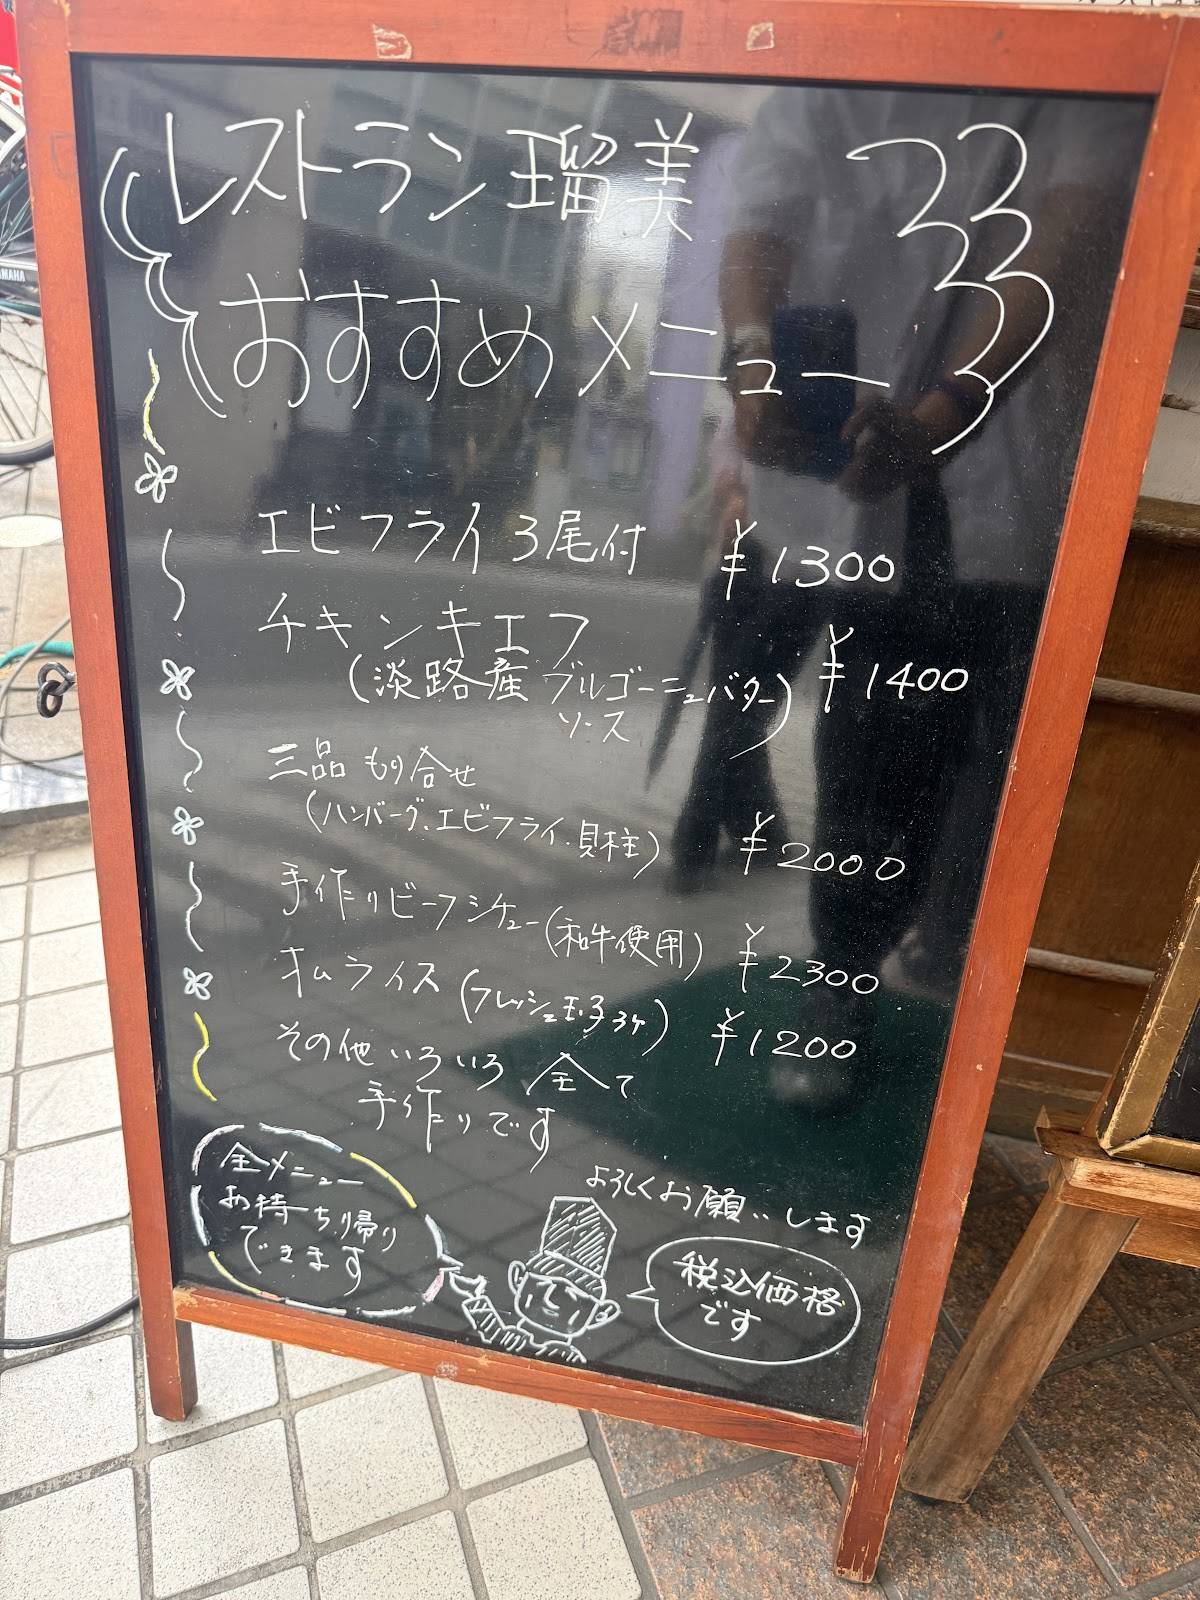 レストラン瑠美
おすすめメニュー
エビフライ3尾付 ¥1300
チキンキエフ
(淡路産ブルゴーニュバター ¥1400
ソース)
三品もり合せ
(ハンバーグ、エビフライ、貝柱) ¥2000
手作りビーフシチュー(和牛使用) ¥2300
オムライス(フレッシュ玉子3ヶ) ¥1200
その他いろいろ全て
手作りです
全メニュー
お持ち帰り
できます
よろしくお願いします
税込価格
です
YAMAHA